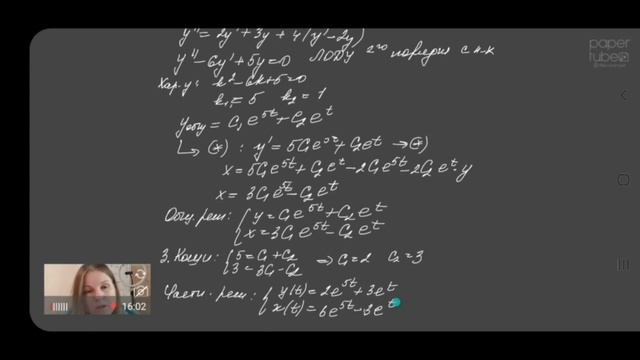 y'' = 2y' + 3y + 4(y' - 2y)
y'' - 6y' + 5y = 0 ЛОДУ 2го порядка с п.к
Хар. у: k² - 6k + 5 = 0
k₁ = 5 k₂ = 1
y = C₁e^5t + C₂e^t
(*) : y' = 5C₁e^5t + C₂e^t → (*)
x = 5C₁e^5t + C₂e^t - 2C₁e^5t - 2C₂e^t
x = 3C₁e^5t - C₂e^t
Общ. реш: { y = C₁e^5t + C₂e^t
x = 3C₁e^5t - C₂e^t
З. Коши: { 5 = C₁ + C₂ ⇒ C₁ = 2 C₂ = 3
3 = 3C₁ - C₂
Частн. реш: { y(t) = 2e^5t + 3e^t
x(t) = 6e^5t - 3e^t
paper
tube
16:02